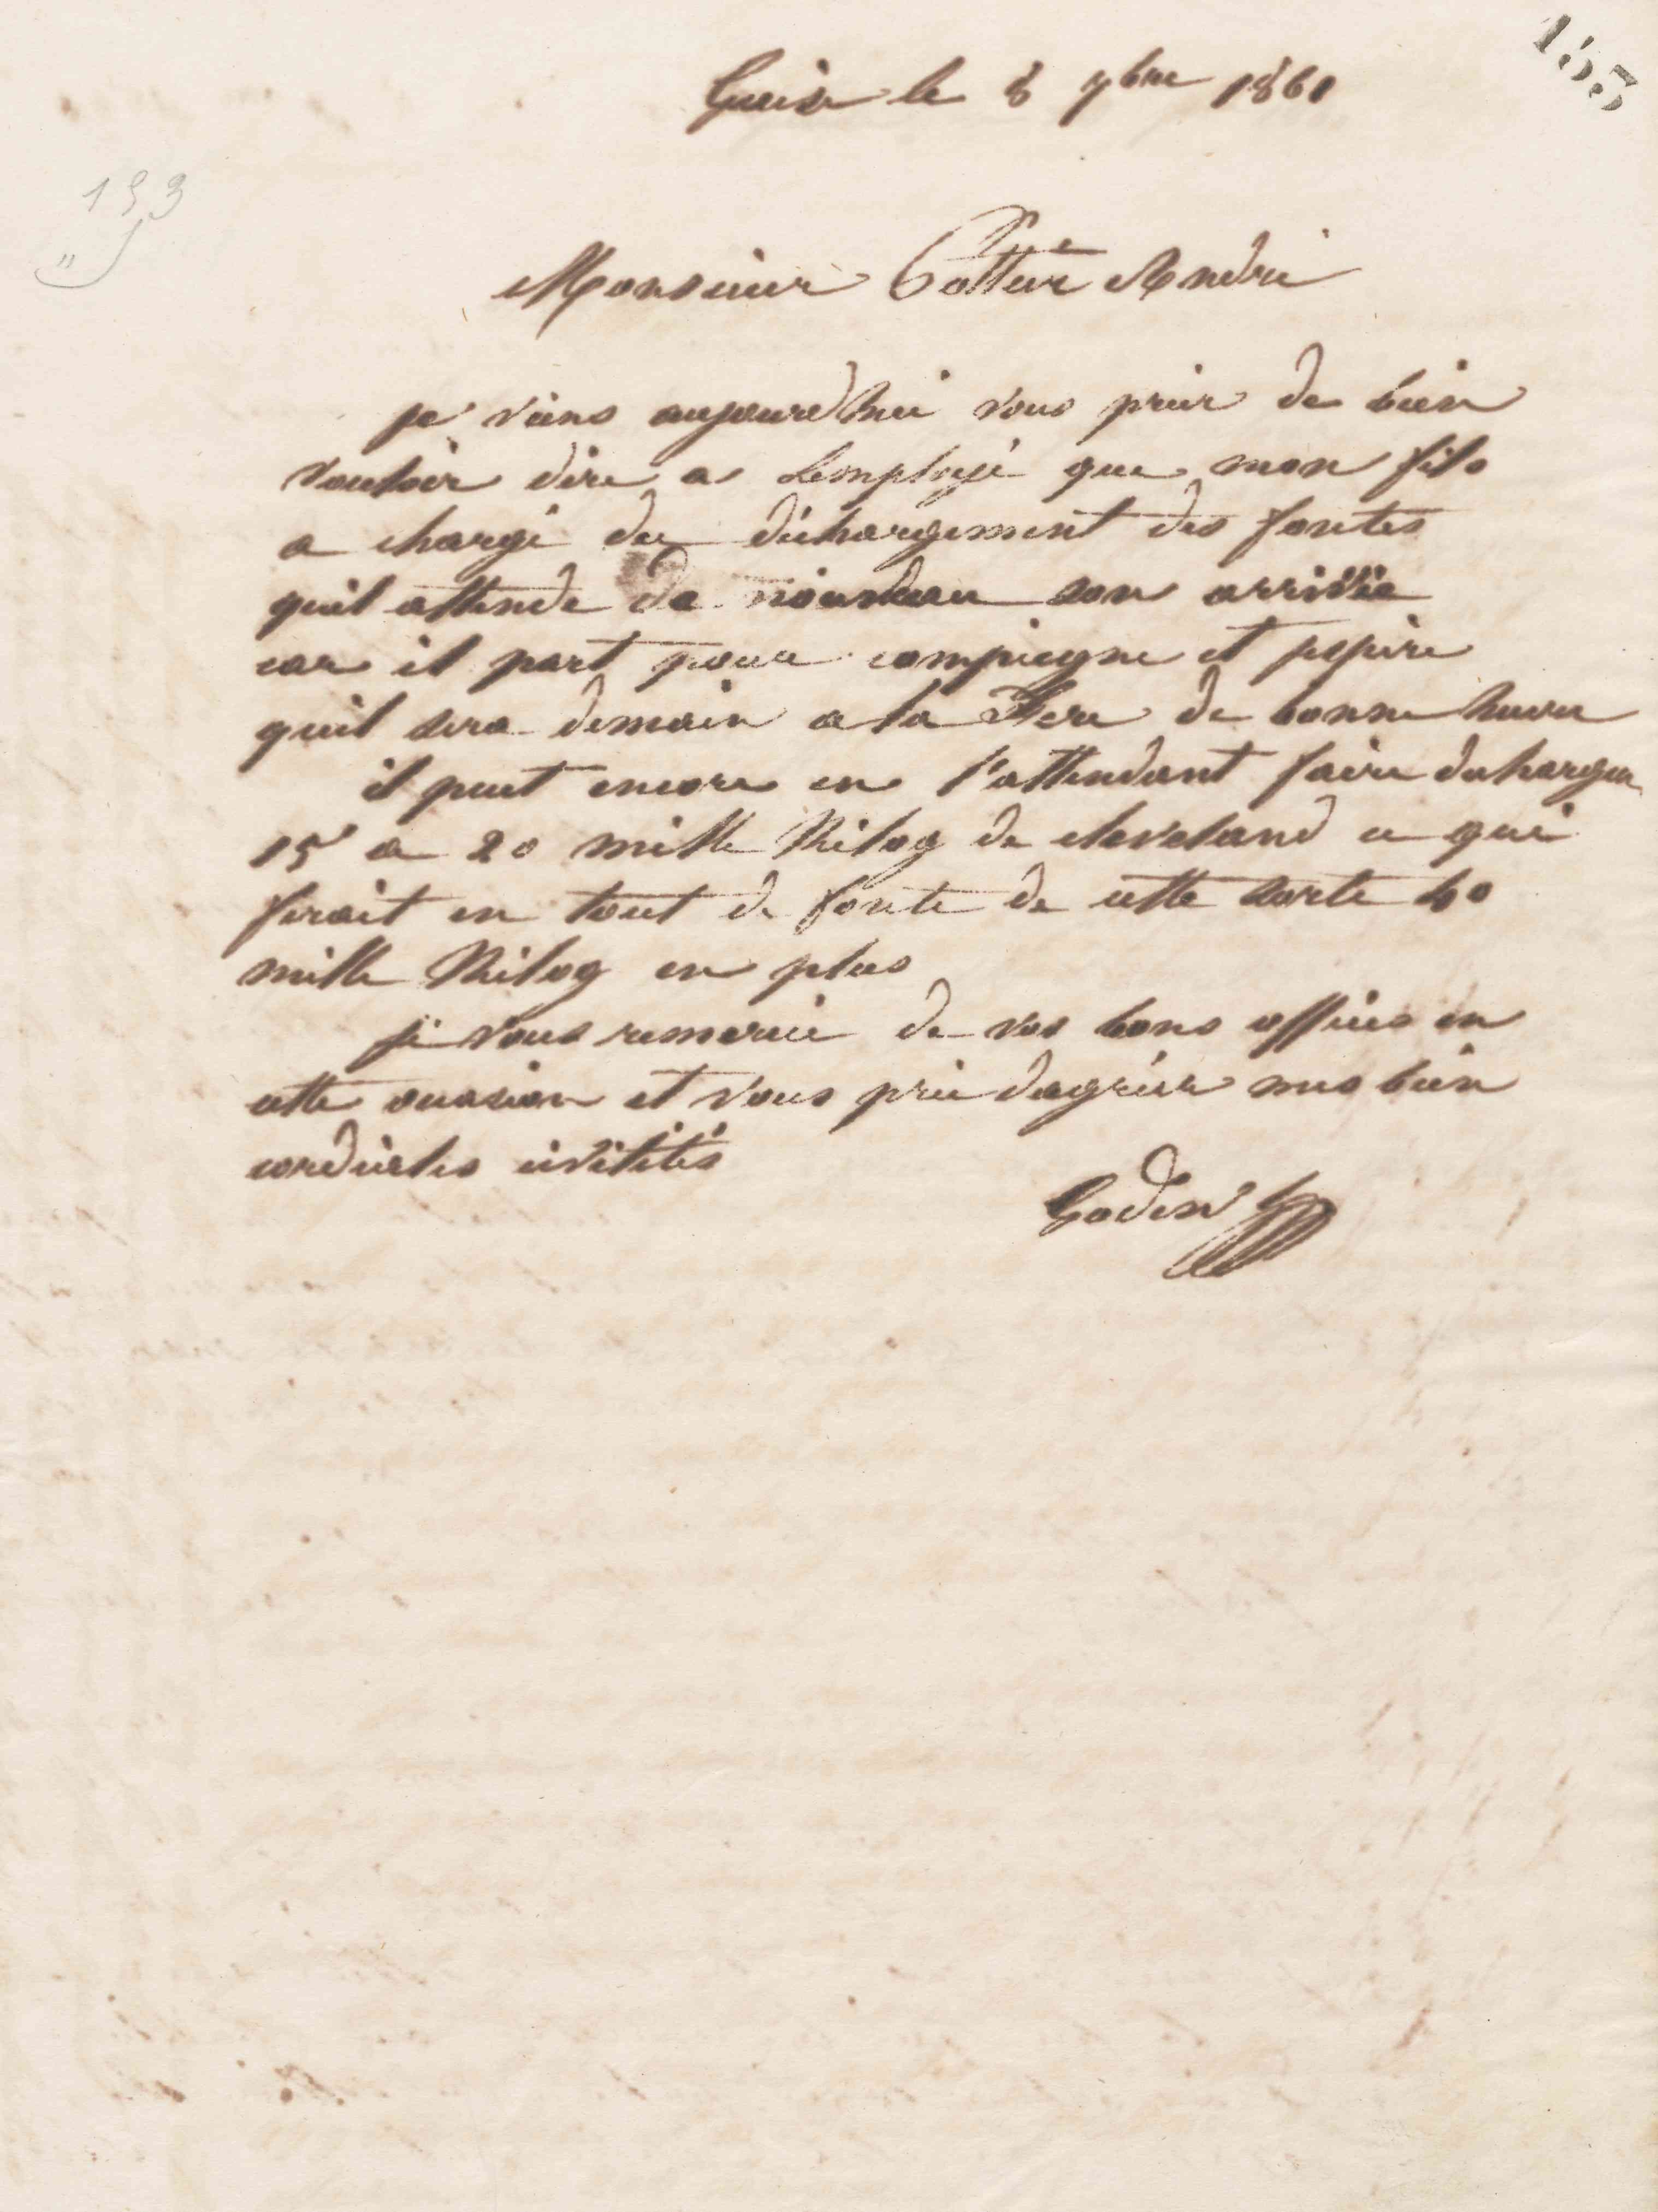 153
Guise le 8 7bre 1861
193
Monsieur Cottere André
je viens aujourd'hui vous prier de bien
vouloir dire a Lemployé que mon fils
a chargé du déchargement des fontes
quil attende de nouveau son arrivée
car il part pour compiegne et jespère
quil sera demain a la Fere de bonne heure
il peut encore en l'attendant faire decharger
15 a 20 mille Kilog de cleveland ce qui
ferait en tout de fonte de cette sorte 40
mille Kilog en plus
je vous remercie de vos bons offices en
cette occasion et vous prie dagréér mes bien
cordiales civilités
Godin